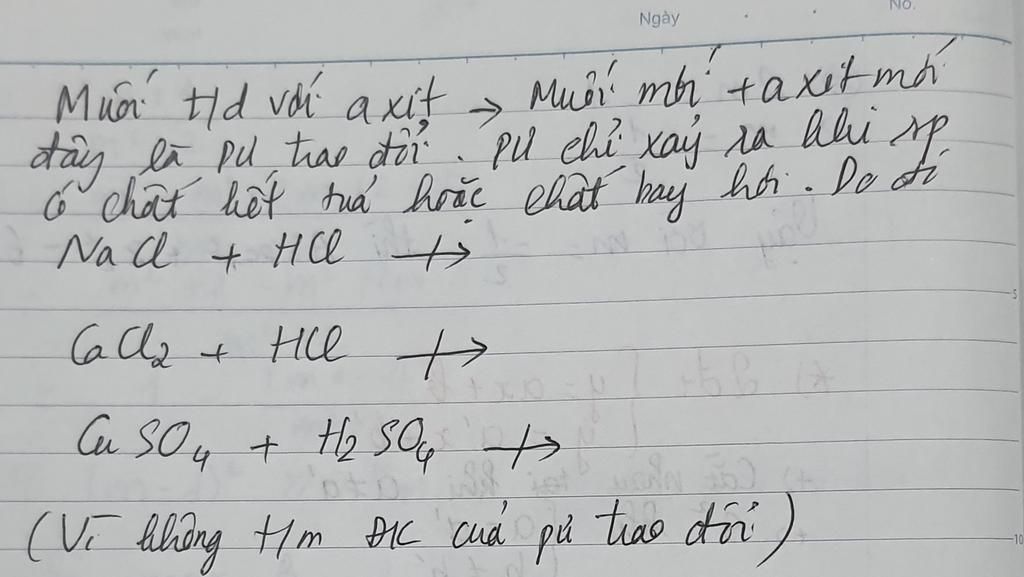 Ngày
No.
Muối t/d với axit → Muối mới + axit mới
đây là PƯ trao đổi. PƯ chỉ xảy ra khi sp
có chất kết tuả hoặc chất bay hơi. Do đó
NaCl + HCl ↛
5
CaCl2 + HCl ↛
CuSO4 + H2SO4 ↛
(Vì không t/m ĐK cuả pứ trao đổi)
10